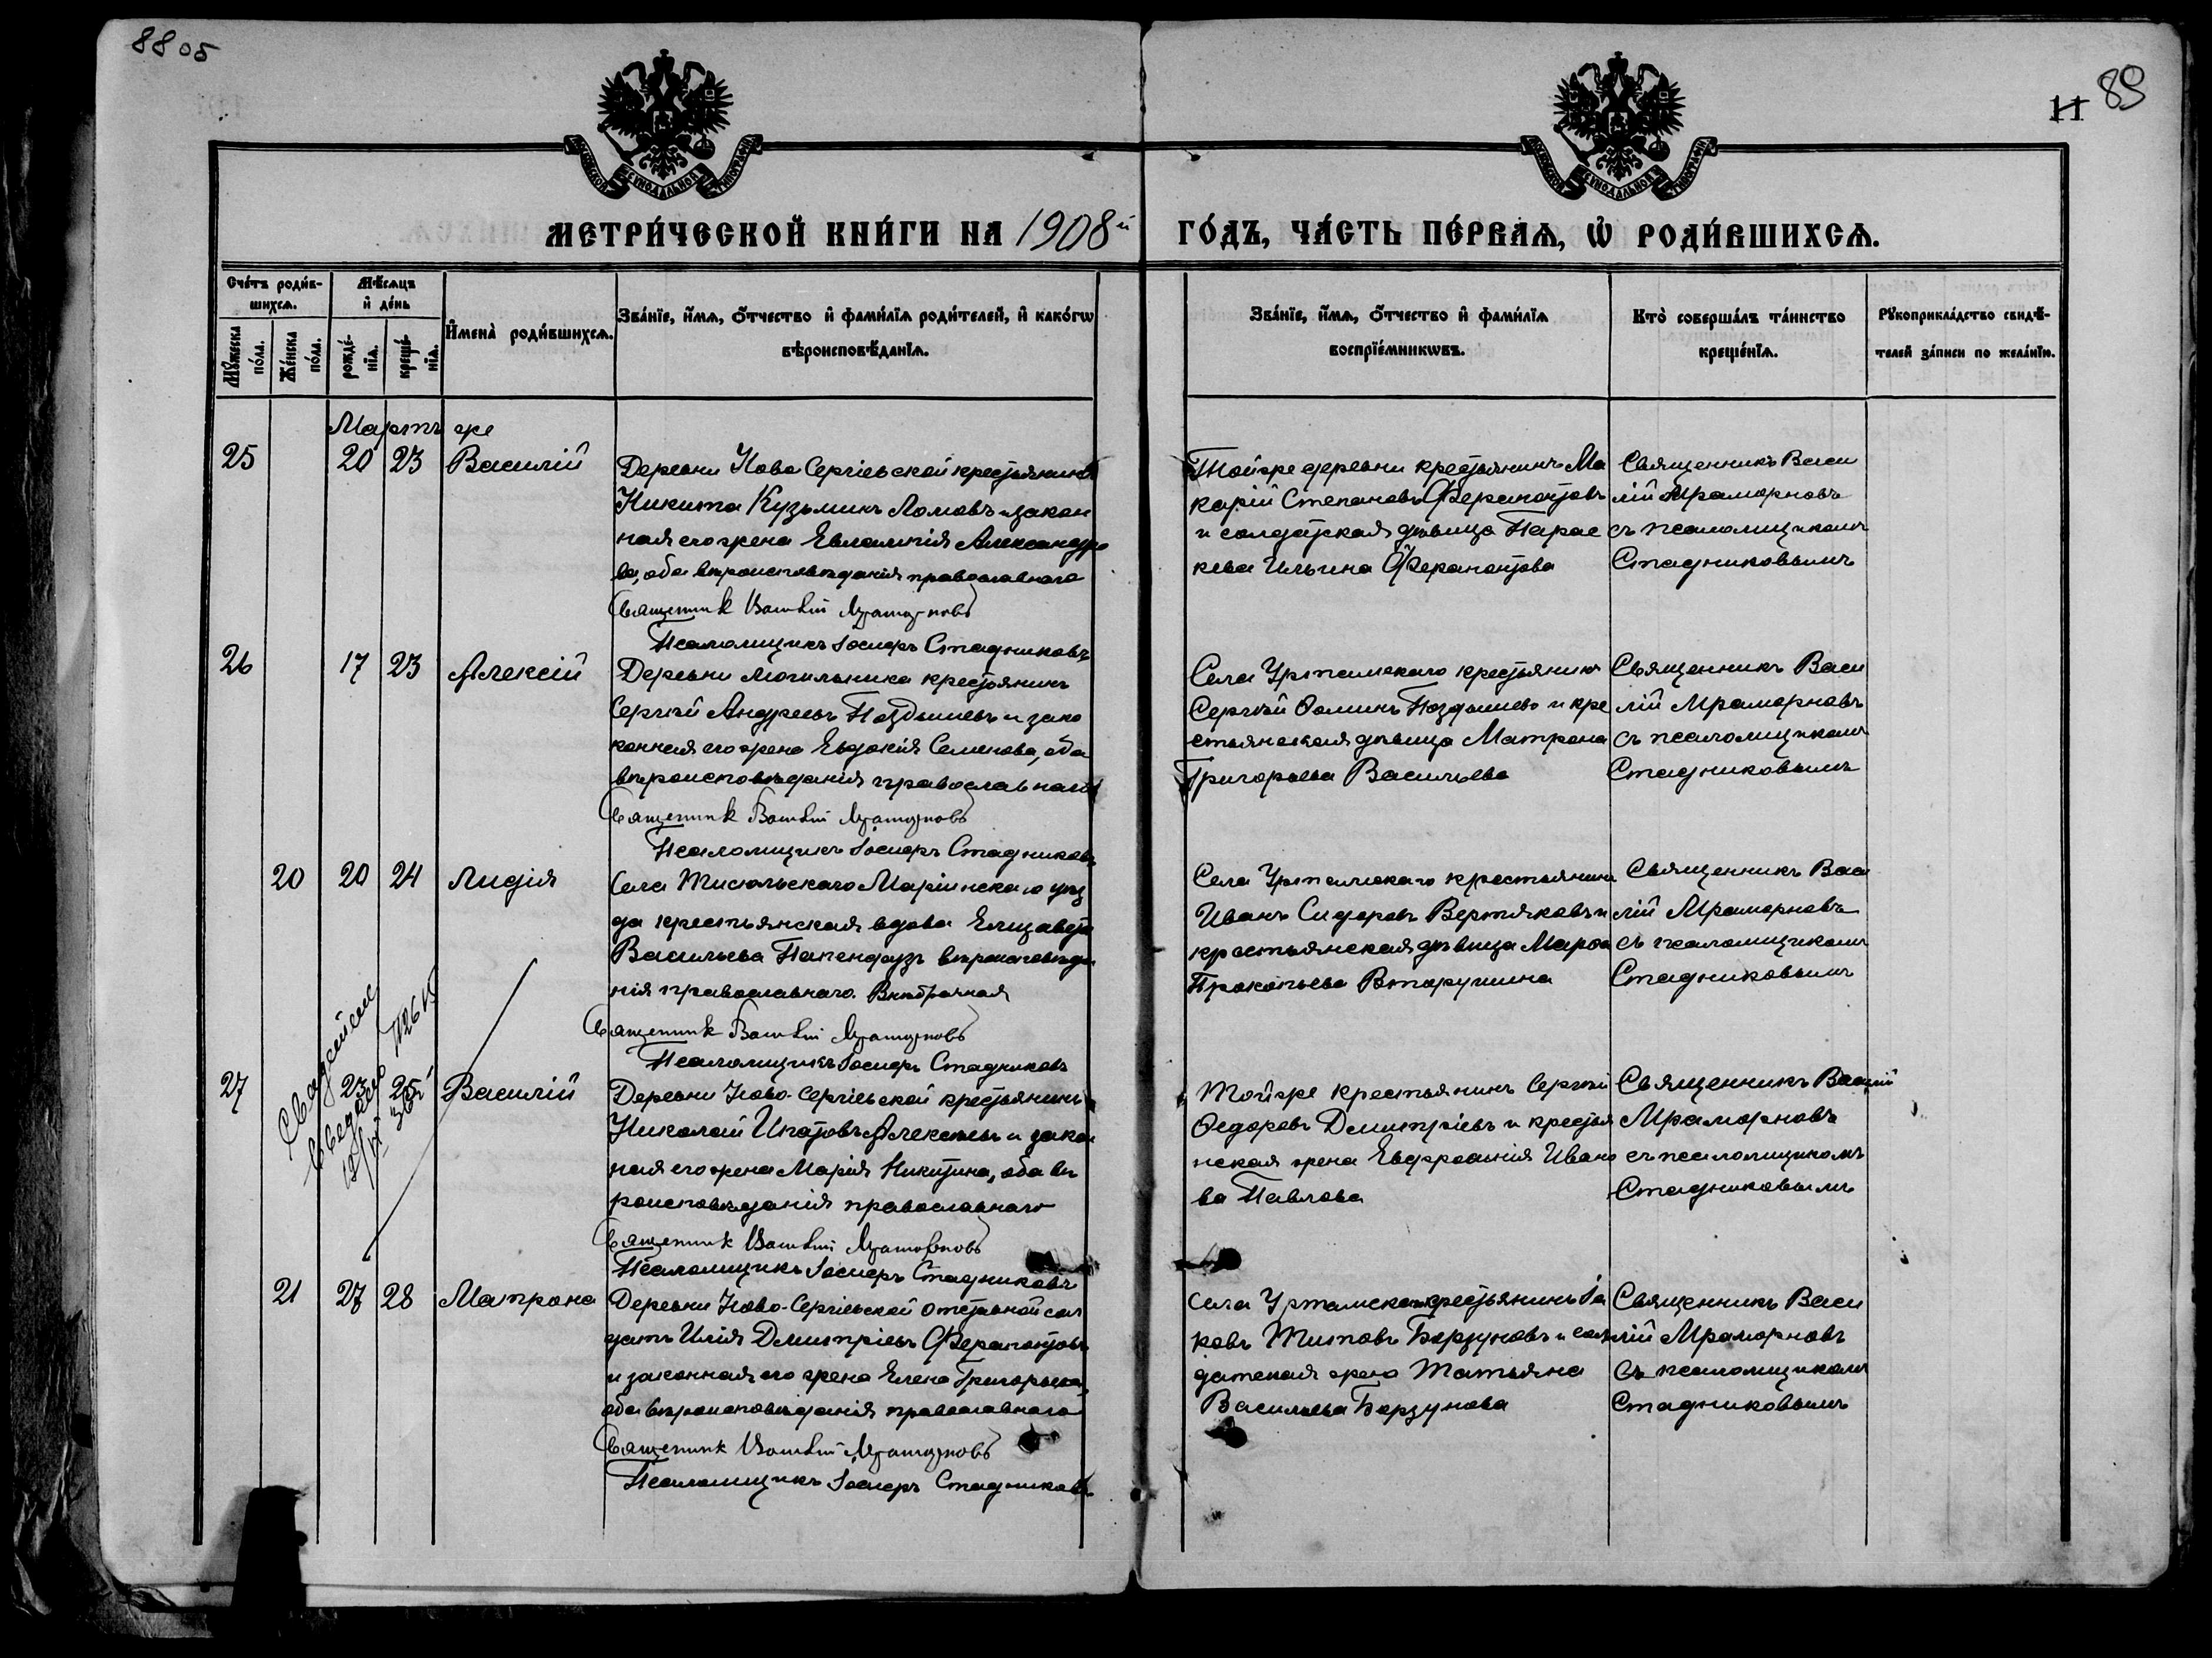 88 об
11 89
МОСКОВСКОЙ СѴНОДАЛЬНОЙ ТИПОГРАФІИ
МОСКОВСКОЙ СѴНОДАЛЬНОЙ ТИПОГРАФІИ
МЕТРИ́ЧЕСКОЙ КНИ́ГИ НА 1908й ГО́ДЪ, ЧА́СТЬ ПЕ́РВАЯ, Ѡ҆ РОДИ́ВШИХСѦ.
Сче́тъ роди́в-
шихсѧ.
Мꙋ́жеска
по́ла.
Же́нска
по́ла.
Мѣ́сѧцъ
и҆ де́нь
рожде́-
нїѧ.
креще́-
нїѧ.
И҆мена̀ роди́вшихсѧ.
Зва́нїе, и҆́мѧ, ѻ҆́тчество и҆ фами́лїѧ роди́телей, и҆ како́гѡ
вѣроисповѣ́данїѧ.
Зва́нїе, и҆́мѧ, ѻ҆́тчество и҆ фами́лїѧ
воспрїе́мникѡвъ.
Кто̀ соверша́лъ та́инство
креще́нїѧ.
Рꙋкоприкла́дство свидѣ́-
телей за́писи по жела́нїю.
Мартъ же
25 20 23 Василій
Деревни Ново Сергіевской крестьянинъ
Никита Кузьминъ Ломовъ и закон
ная его жена Евлампія Александро
ва, оба вѣроисповѣданія православнаго
Священник Василій Мраморновъ
Псаломщикъ Іосифъ Стадниковъ
Той же деревни крестьянинъ Ма
карій Степановъ Ферапонтовъ
и солдатская дѣвица Парас
кева Ильина Ферапонтова
Священникъ Васи
лій Мраморновъ
съ псаломщикомъ
Стадниковымъ
26 17 23 Алексій
Деревни Могильника крестьянинъ
Сергѣй Андреевъ Поздышевъ и зако
конная его жена Евдокія Семенова, оба
вѣроисповѣданія православнаго
Священник Василій Мраморновъ
Псаломщикъ Іосифъ Стадниковъ
Села Уртамскаго крестьянинъ
Сергѣй Ѳоминъ Поздышевъ и кре
стьянская дѣвица Матрона
Григорьева Васильева
Священникъ Васи
лій Мраморновъ
съ псаломщикомъ
Стадниковымъ
20 20 24 Лидія
Села Тисюльскаго Маріинскаго уѣз
да крестьянская вдова Елизавета
Васильева Папендузъ вѣроисповѣда
нія православнаго. Внѣбрачная
Священник Василій Мраморновъ
Псаломщикъ Іосифъ Стадниковъ
Села Уртамскаго крестьянинъ
Иванъ Сидоровъ Вертяковъ и
крестьянская дѣвица Марѳа
Прокопьева Вторушина
Священникъ Васи
лій Мраморновъ
съ псаломщикомъ
Стадниковымъ
27 23 25 Василій
Деревни Ново-Сергіевской крестьянинъ
Николай Ипатовъ Алексѣевъ и закон
ная его жена Марія Никитина, оба вѣ
роисповѣданія православнаго
Священник Василій Мраморновъ
Псаломщикъ Іосифъ Стадниковъ
Той же крестьянинъ Сергѣй
Ѳедоровъ Дмитріевъ и крестья
нская жена Евфросинія Ивано
ва Павлова
Священникъ Василій
Мраморновъ
съ псаломщикомъ
Стадниковымъ
21 27 28 Матрона
Деревни Ново-Сергіевской отставной сол
датъ Илія Дмитріевъ Ферапонтовъ
и законная его жена Елена Григорьева,
оба вѣроисповѣданія православнаго
Священник Василій Мраморновъ
Псаломщикъ Іосифъ Стадниковъ
Села Уртамскаго крестьянинъ Іа
ковъ Титовъ Борзуновъ и сол
датская жена Татьяна
Васильева Борзунова
Священникъ Васи
лій Мраморновъ
съ псаломщикомъ
Стадниковымъ